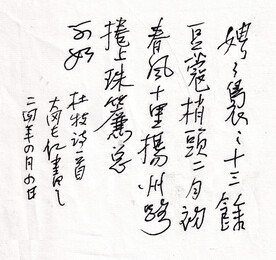 娉々裊々十三餘
豆蔻梢頭二月初
春風十里揚州路
捲上珠簾总
不如
杜牧诗一首
书
二〇〇年〇月〇日